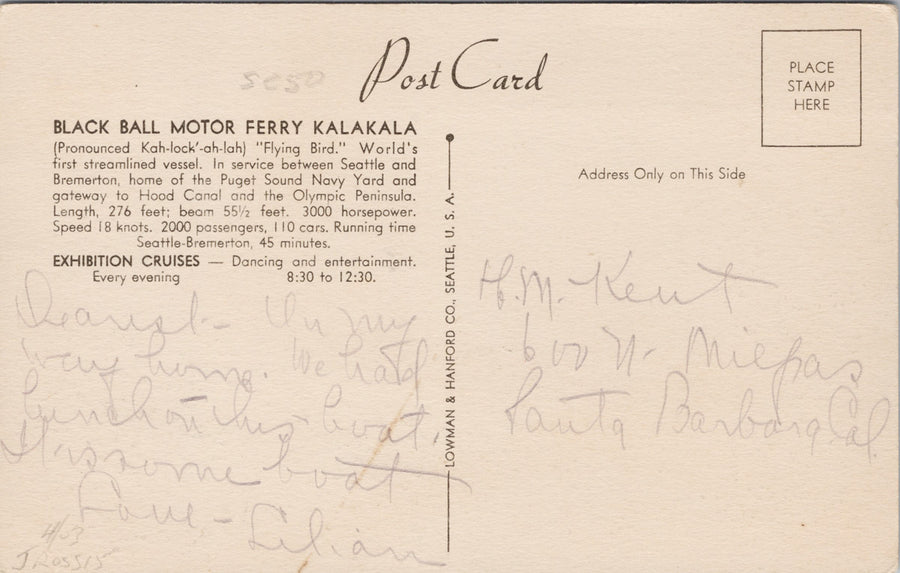 Post Card
PLACE
STAMP
HERE
BLACK BALL MOTOR FERRY KALAKALA
(Pronounced Kah-lock'-ah-lah) "Flying Bird." World's
first streamlined vessel. In service between Seattle and
Bremerton, home of the Puget Sound Navy Yard and
gateway to Hood Canal and the Olympic Peninsula.
Length, 276 feet; beam 55½ feet. 3000 horsepower.
Speed 18 knots. 2000 passengers, 110 cars. Running time
Seattle-Bremerton, 45 minutes.
EXHIBITION CRUISES — Dancing and entertainment.
Every evening 8:30 to 12:30.
Dearest - On my
way home. We had
lunch on this boat.
It's some boat
Love - Lilian
4/03
LOWMAN & HANFORD CO., SEATTLE, U. S. A.
Address Only on This Side
H. M. Kent
600 N. Milpas
Santa Barbara Cal.